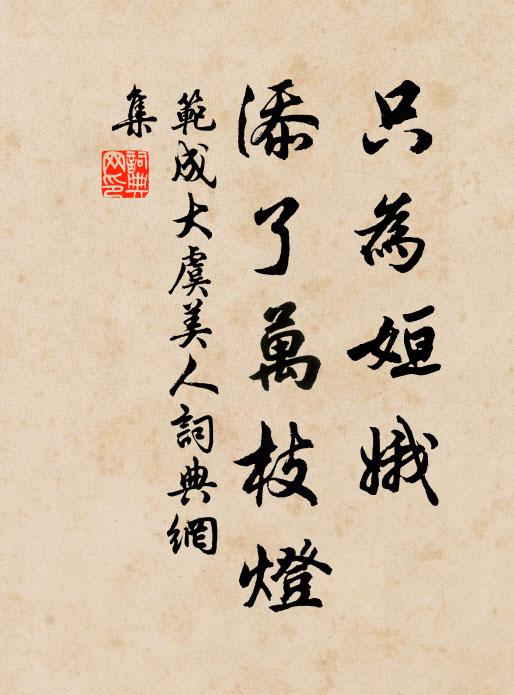 只為姮娥
添了萬枝燈
範成大虞美人詞典網
集
詞典
網印